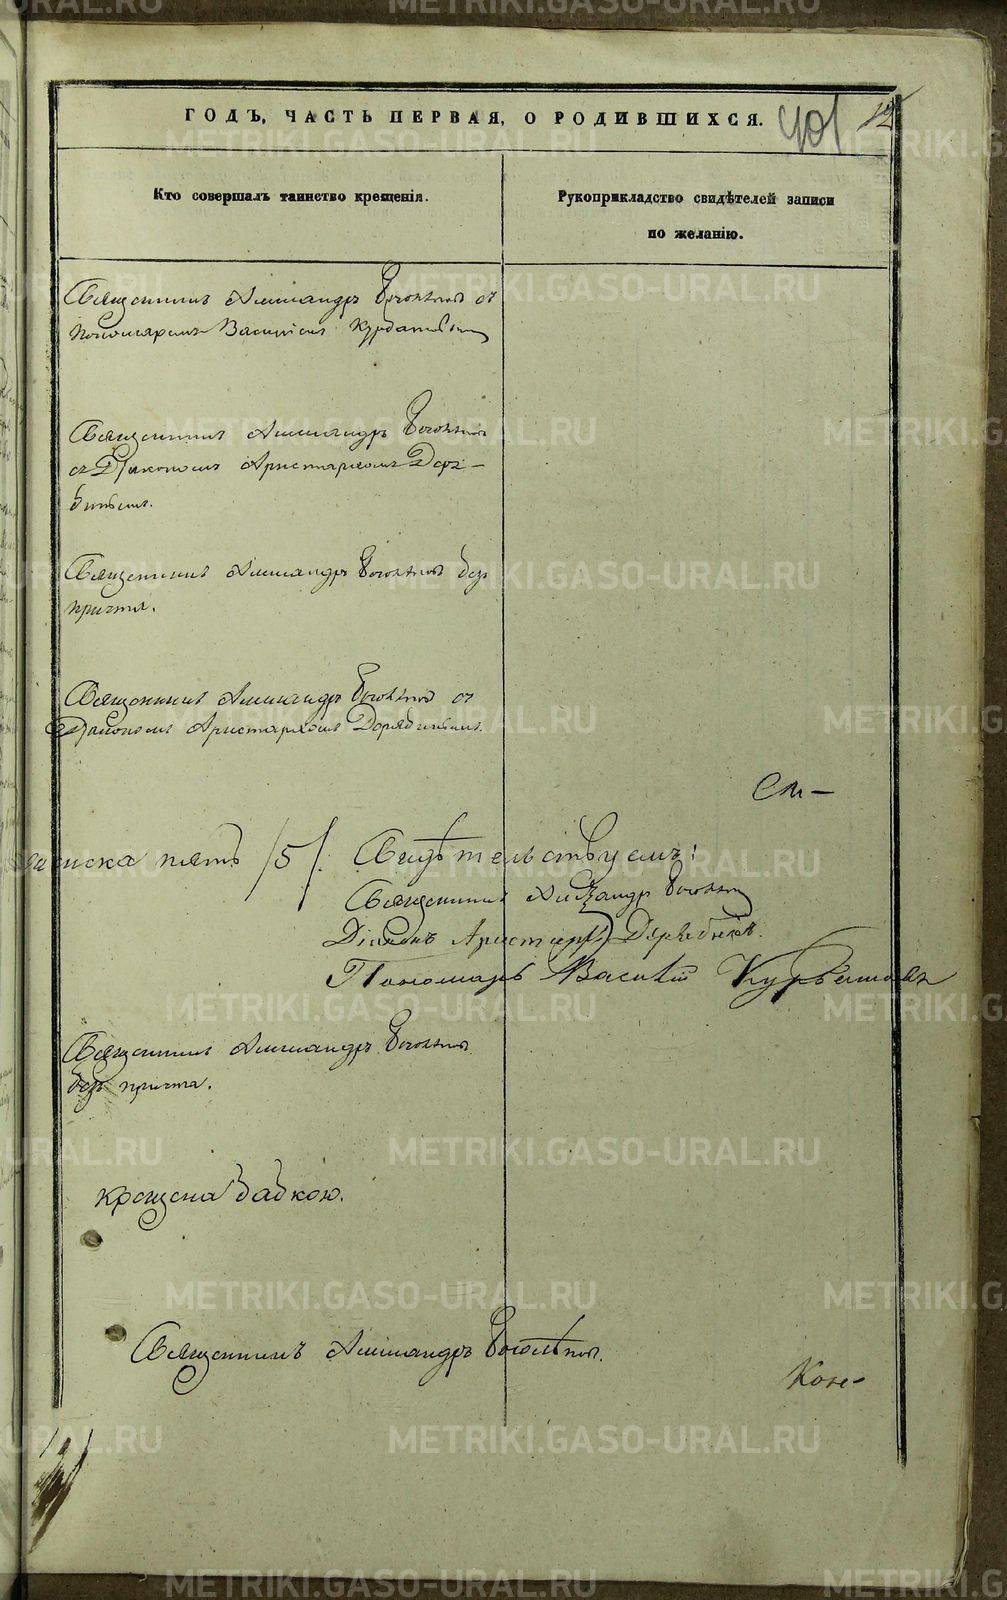 ГОДЪ, ЧАСТЬ ПЕРВАЯ, О РОДИВШИХСЯ.
401 12
Кто совершалъ таинство крещенія.
Рукоприкладство свидѣтелей записи
по желанію.
Священникъ Александръ Боголѣповъ съ
пономаремъ Василіемъ Курбатовымъ
Священникъ Александръ Боголѣповъ
съ Діакономъ Аристархомъ Деря-
бинымъ.
Священникъ Александръ Боголѣповъ безъ
причта.
Священникъ Александръ Боголѣповъ съ
Діакономъ Аристархомъ Дерябинымъ.
пять /5/. Свидѣтельствуемъ:
Священникъ Александръ Боголѣповъ
Діаконъ Аристархъ Дерябинъ.
Пономарь Василій Курбатовъ
Священникъ Александръ Боголѣповъ
безъ причта.
крещена бабкою.
Священникъ Александръ Боголѣповъ.
METRIKI.GASO-URAL.RU